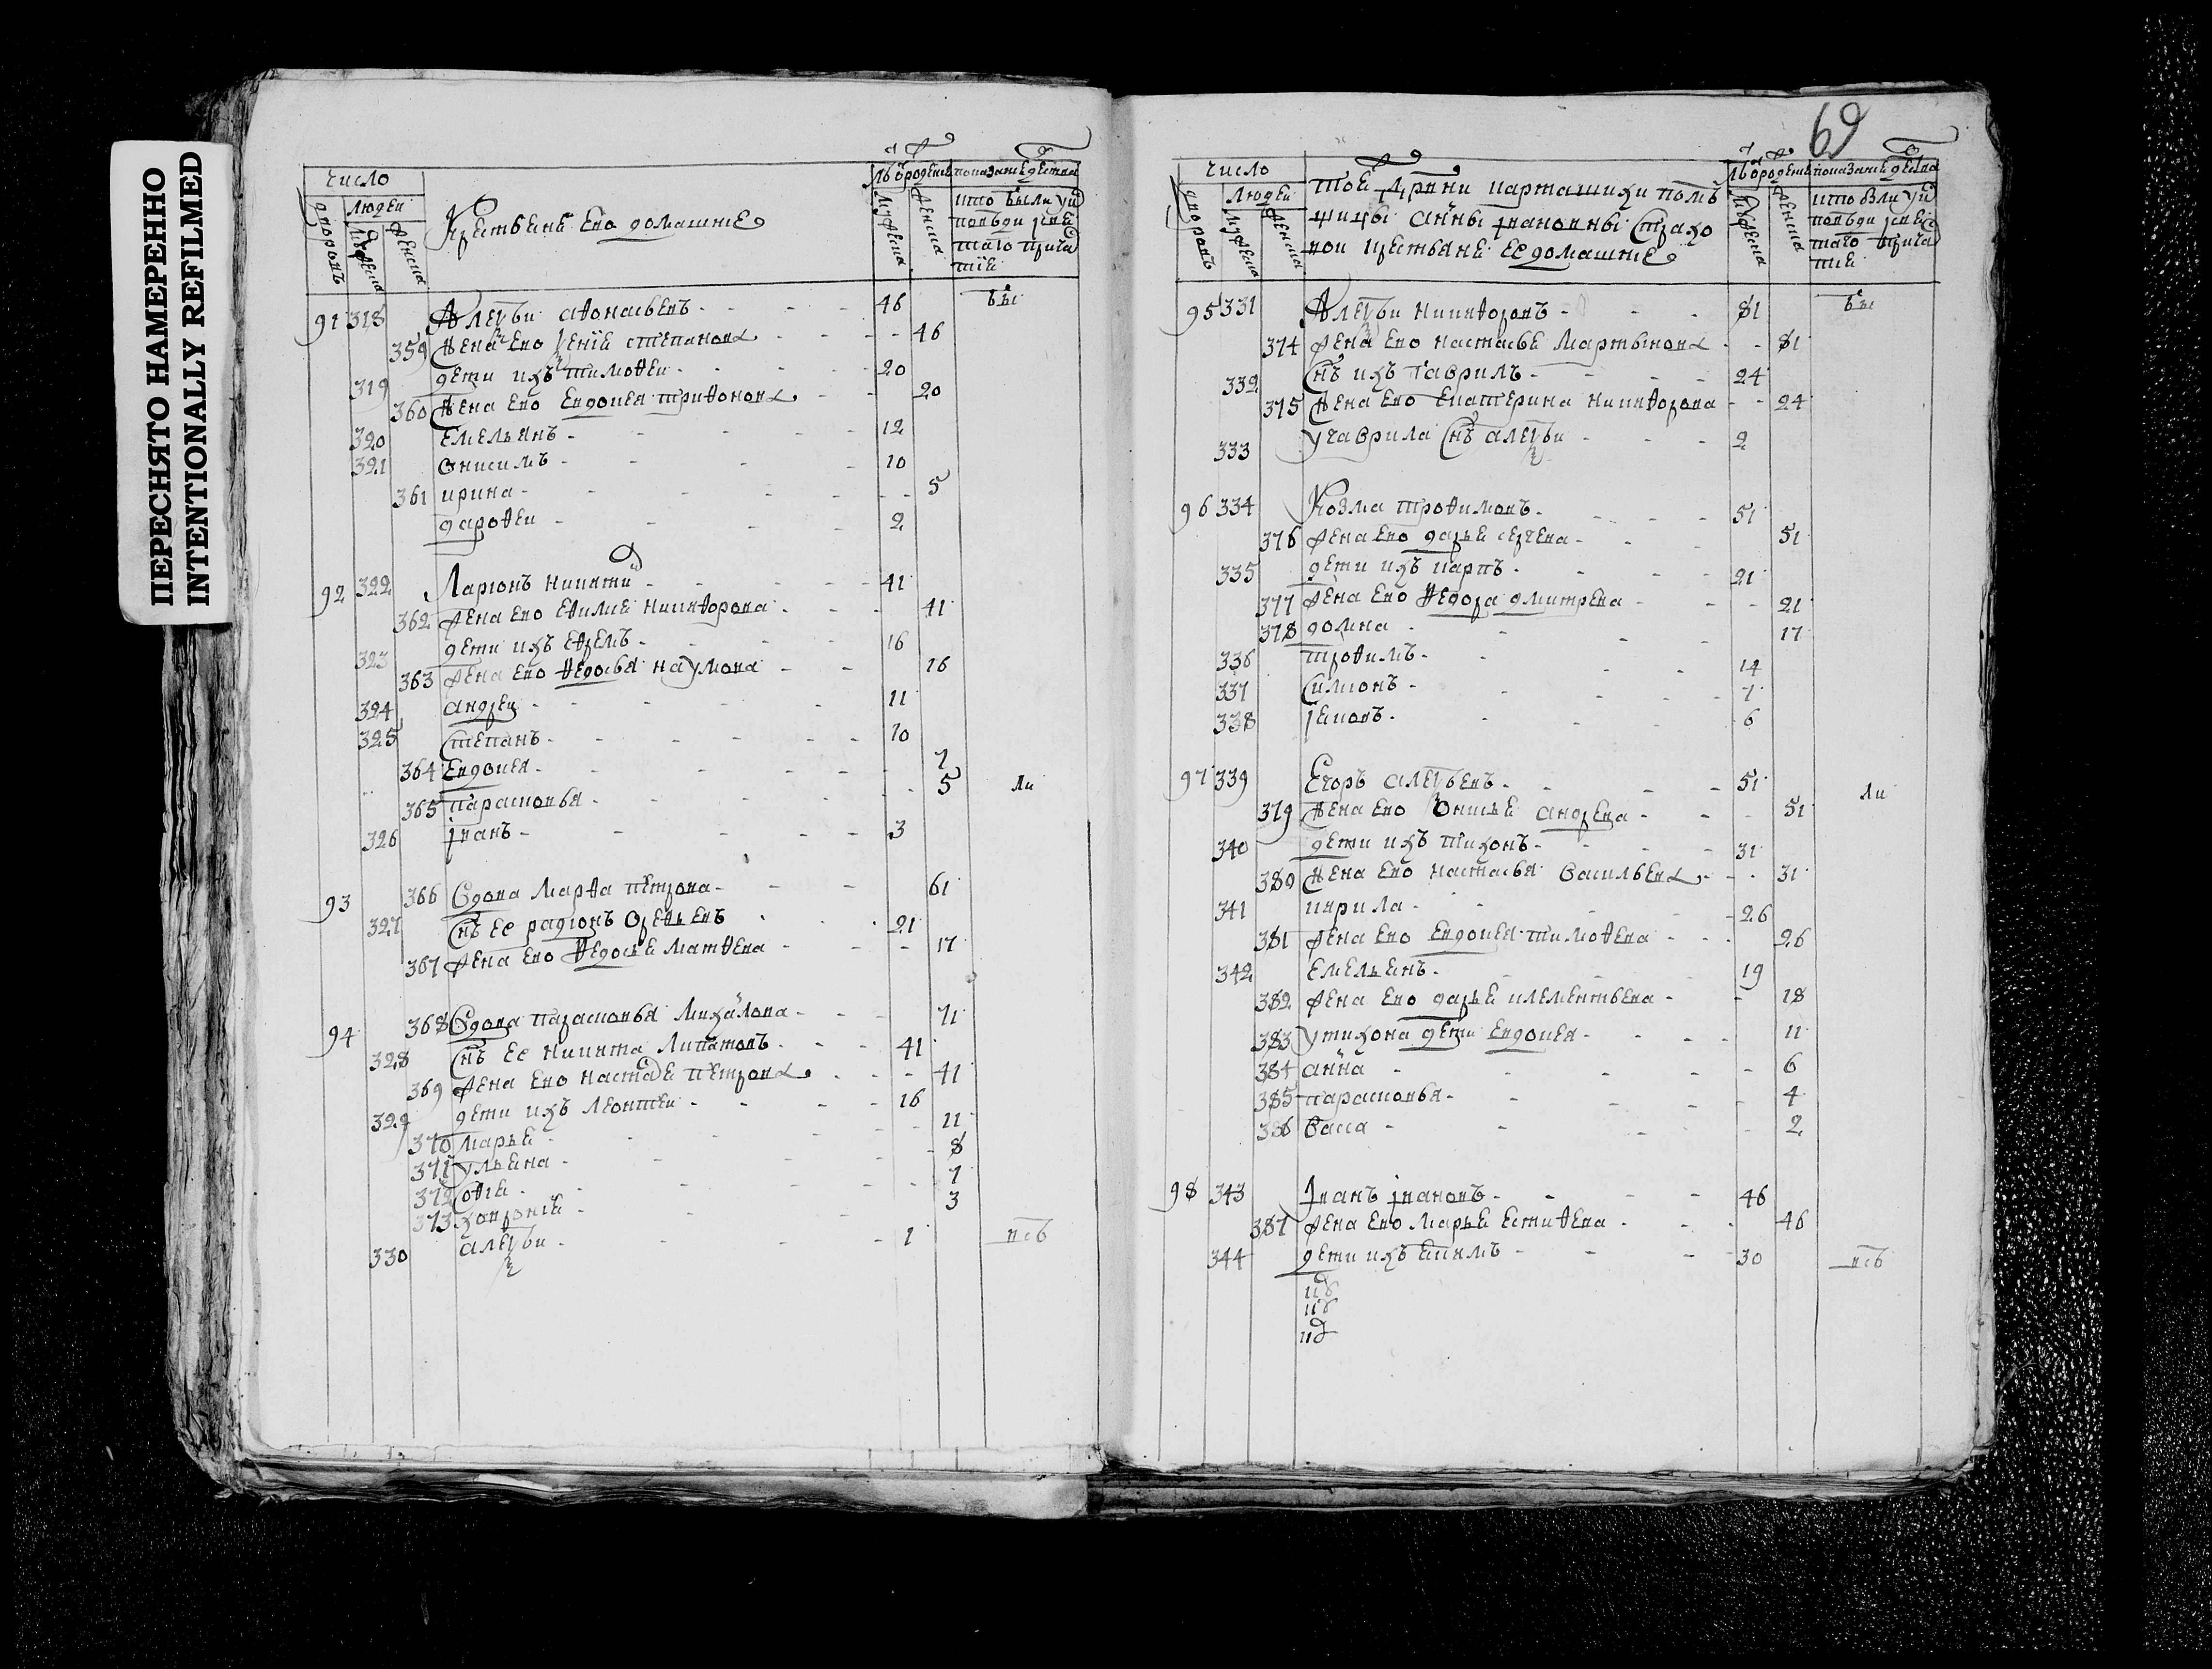 ПЕРЕСНЯТО НАМЕРЕННО
INTENTIONALLY REFILMED
число
людеи
дворовъ
мужеска
женска
Крестьянѣ ево домашние
мужеска
женска
показание действа
что были у исповеди
91 318 Алеѯѣи афонасьевъ 46
359 жена ево степанова 46
319 дети ихъ тимофеи 20
360 жена ево евдокея трифонова 20
320 емельянъ 12
321 онисимъ 10
361 ирина 5
дарофеи 2
92 322 Ларионъ никити 41
362 жена ево ефимия никифорова 41
323 дети ихъ ефремъ 16
363 жена ево федосья наумова 16
324 андреи 11
325 степанъ 10
364 Евдокея 7
365 парасковья 5
326 іванъ 3
93 366 вдова марфа петрова 61
327 снъ ее радионъ 21
367 жена ево федосья матфева 17
94 368 вдова парасковья михаилова 71
328 снъ ее никита липатовъ 41
369 жена ево настася петрова 41
329 дети ихъ леонтеи 16
370 марья 11
371 ульяна 8
372 софия 7
373 хавронія 3
330 алеѯѣи 1
69
число
людеи
дворовъ
мужеска
женска
тое држвни карташихи помѣ
щицы анны івановны страхо
вои крестьяне ее домашние
мужеска
женска
показание действа
95 331 Алеѯѣи никифоровъ 81
374 жена ево настасья мартынова 81
332 снъ ихъ гаврилъ 24
375 жена ево екатерина никифорова 24
333 у гаврила снъ алеѯѣи 2
96 334 Козма трофимовъ 51
376 жена ево дарья сергева 51
335 дети ихъ карпъ 21
377 жена ево федора дмитрева 21
378 домна 17
336 трофимъ 14
337 симионъ 7
338 іаковъ 6
97 339 Егоръ алеѯѣевъ 51
379 жена ево онисья андрева 51
340 дети ихъ тихонъ 31
380 жена ево настасья васильева 31
341 кирила 26
381 жена ево евдокея тимофева 26
342 емельянъ 19
382 жена ево дарья клементьева 18
383 у тихона дети евдокея 11
384 анна 6
385 парасковья 4
386 васса 2
98 343 іванъ івановъ 46
387 жена ево марья естифева 46
344 дети ихъ екимъ 30